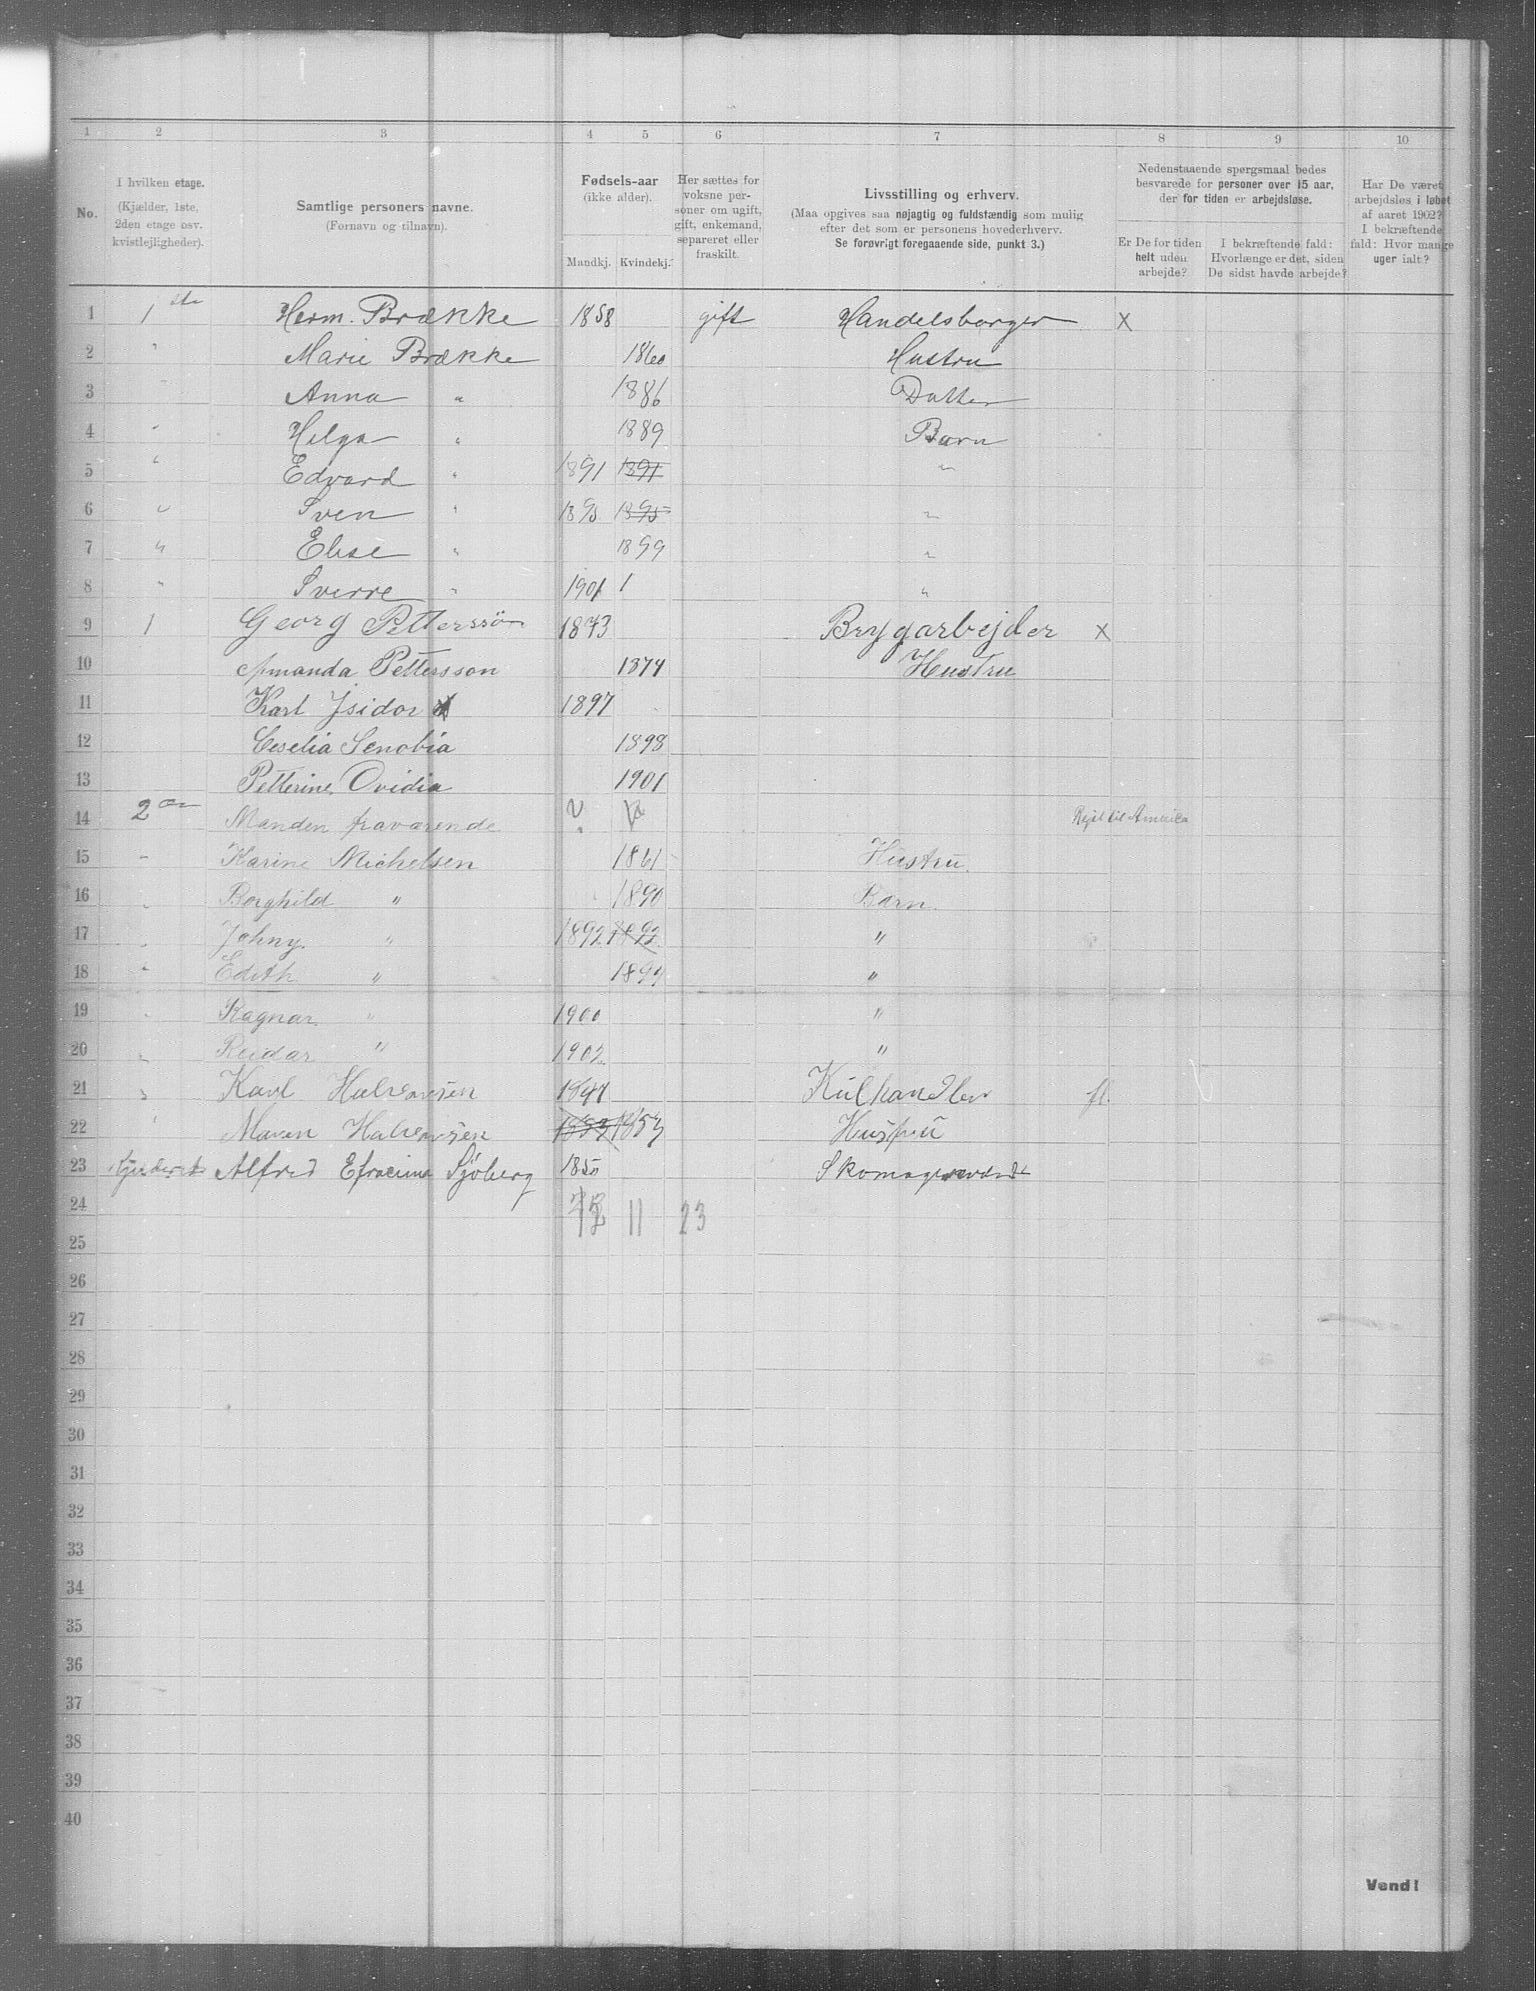 1 2 3 4 5 6 7 8 9 10
No.
I hvilken etage.
(Kjælder, 1ste,
2den etage osv.
kvistlejligheder).
Samtlige personers navne.
(Fornavn og tilnavn).
Fødsels-aar
(ikke alder).
Mandkj. Kvindekj.
Her sættes for
voksne per-
soner om ugift,
gift, enkemand,
separeret eller
fraskilt.
Livsstilling og erhverv.
(Maa opgives saa nøjagtig og fuldstændig som mulig
efter det som er personens hovederhverv.
Se forøvrigt foregaaende side, punkt 3.)
Nedenstaaende spørgsmaal bedes
besvarede for personer over 15 aar,
der for tiden er arbejdsløse.
Er De for tiden
helt uden
arbejde?
I bekræftende fald:
Hvorlænge er det, siden
De sidst havde arbejde?
Har De været
arbejdsløs i løbet
af aaret 1902?
I bekræftende
fald: Hvor mange
uger ialt?
1 1ste Herm. Brække 1858 gift Handelsborger x
2 " Marie Brække 1860 Hustru
3 " Anna " 1886 Datter
4 " Helga " 1889 Barn
5 " Edvard " 1891 1891 "
6 " Sven " 1895 1895 "
7 " Elise " 1899 "
8 " Sverre " 1901 1 "
9 1 Georg Petterssøn 1873 Brygarbejder x
10 Amanda Pettersson 1874 Hustru
11 Karl Isidor 1897
12 Ceselia Senobia 1898
13 Petterine Ovidia 1901
14 2 Manden fraværende ? Rejst til America
15 " Karine Michelsen 1861 Hustru.
16 " Borghild " 1890 Barn.
17 " Johny. " 1892 1892 "
18 " Edith " 1894 "
19 " Ragnar " 1900 "
20 " Reidar " 1902 "
21 " Karl Halvorsen 1847 Kulhandler fl.
22 " Maren Halvorsen 1853 1853 Husfru
23 Alfred Efraeima Sjöberg 1850
24 12 11 23
25
26
27
28
29
30
31
32
33
34
35
36
37
38
39
40
Vend!